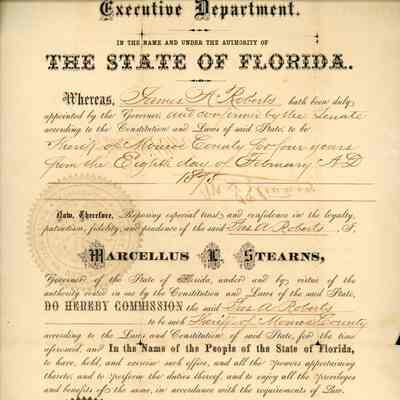 Executive Department.
IN THE NAME AND UNDER THE AUTHORITY OF
THE STATE OF FLORIDA.
Whereas, James A Roberts hath been duly
appointed by the Governor and confirmed by the Senate
according to the Constitution and Laws of said State, to be
Sheriff of Monroe County for four years
from the Eighth day of February A.D
187
Now, Therefore, Reposing especial trust and confidence in the loyalty,
patriotism, fidelity, and prudence of the said Jas A Roberts, I,
MARCELLUS L. STEARNS,
Governor of the State of Florida, under and by virtue of the
authority vested in me by the Constitution and Laws of the said State,
DO HEREBY COMMISSION the said Jas A Roberts
to be such Sheriff of Monroe County
according to the Laws and Constitution of said State, for the time
aforesaid, and In the Name of the People of the State of Florida,
to have, hold, and exercise said office, and all the powers appertaining
thereto, and to perform the duties thereof, and to enjoy all the privileges
and benefits of the same, in accordance with the requirements of Law.